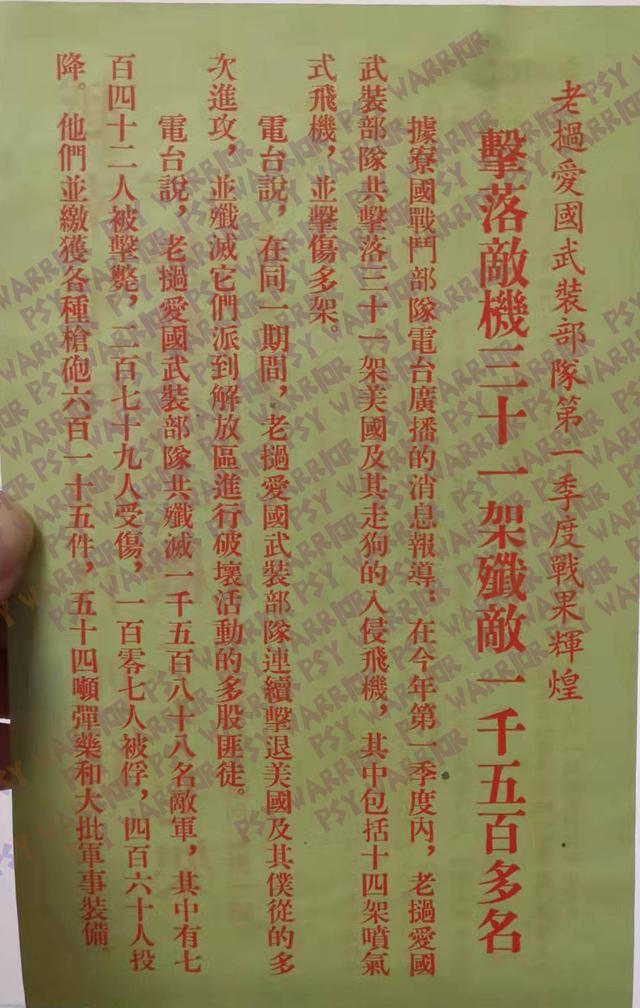 老撾愛國武裝部隊第一季度戰果輝煌
擊落敵機三十一架殲敵一千五百多名
據寮國戰鬥部隊電台廣播的消息報導：在今年第一季度內，老撾愛國
武裝部隊共擊落三十一架美國及其走狗的入侵飛機，其中包括十四架噴氣
式飛機，並擊傷多架。
電台說，在同一期間，老撾愛國武裝部隊連續擊退美國及其僕從的多
次進攻，並殲滅它們派到解放區進行破壞活動的多股匪徒。
電台說，老撾愛國武裝部隊共殲滅一千五百八十八名敵軍，其中有七
百四十二人被擊斃，二百七十九人受傷，一百零七人被俘，四百六十人投
降。他們並繳獲各種槍砲六百一十五件，五十四噸彈藥和大批軍事裝備。
PSY WARRIOR